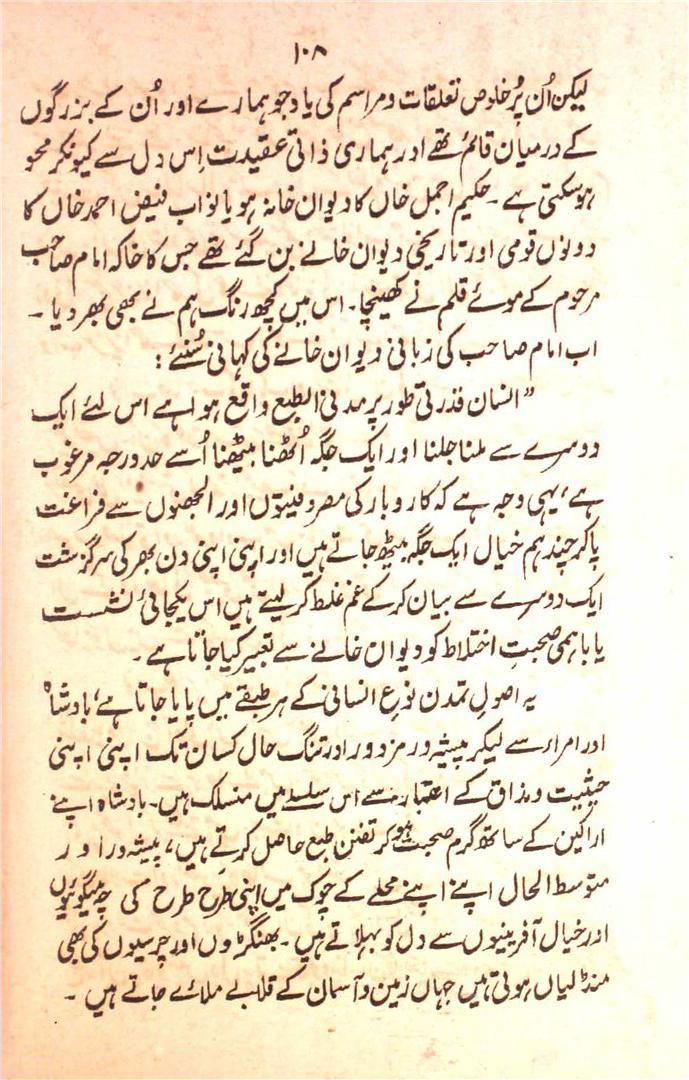 ۱۰۸
لیکن اُن پُر خلوص تعلقات و مراسم کی یاد جو ہمارے اور اُن کے بزرگوں
کے درمیان قائم تھے اور ہماری ذاتی عقیدت اِس دل سے کیونکر محو
ہوسکتی ہے ۔ حکیم اجمل خاں کا دیوان خانہ ہو یا نواب فیض احمد خاں کا
دونوں قومی اور تاریخی دیوان خانے بن گئے تھے جس کا خاکہ امام صاحب
مرحوم کے موئے قلم نے کھینچا ۔ اس میں کچھ رنگ ہم نے بھی بھر دیا ۔
اب امام صاحب کی زبانی دیوان خانے کی کہانی سُنئے :
” انسان قدرتی طور پر مدنی الطبع واقع ہوا ہے اس لئے ایک
دوسرے سے ملنا جلنا اور ایک جگہ اُٹھنا بیٹھنا اُسے حد درجہ مرغوب
ہے، یہی وجہ ہے کہ کاروبار کی مصروفیتوں اور الجھنوں سے فراغت
پاکر چند ہم خیال ایک جگہ بیٹھ جاتے ہیں اور اپنی اپنی دن بھر کی سرگزشت
ایک دوسرے سے بیان کر کے غم غلط کر لیتے ہیں اس یکجائی نشست
یا باہمی صحبتِ اختلاط کو دیوان خانے سے تعبیر کیا جاتا ہے ۔
یہ اصولِ تمدن نوعِ انسانی کے ہر طبقے میں پایا جاتا ہے، بادشاہ
اور امراء سے لیکر پیشہ ور مزدور اور تنگ حال کسان تک اپنی اپنی
حیثیت و مذاق کے اعتبار سے اس سلسلے میں منسلک ہیں ۔ بادشاہ اپنے
اراکین کے ساتھ گرم صحبت ہو کر تفننِ طبع حاصل کرتے ہیں، پیشہ ور اور
متوسط الحال اپنے اپنے محلے کے چوک میں اپنی طرح طرح کی چہ میگوئیوں
اور خیال آفرینیوں سے دل کو بہلاتے ہیں ۔ بھنگڑوں اور چرسیوں کی بھی
منڈلیاں ہوتی ہیں جہاں زمین و آسمان کے قلابے ملائے جاتے ہیں ۔